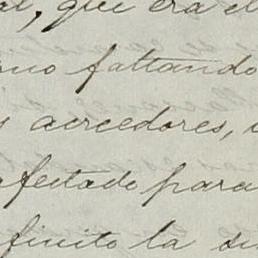 al, que era el
no faltando
s acreedores,
afectado para
finito la